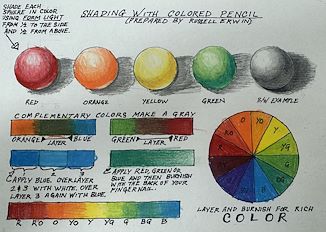 SHADING WITH COLORED PENCIL
(PREPARED BY RUSSELL ERWIN)
SHADE EACH
SPHERE IN COLOR
USING FORM LIGHT
FROM ½ TO THE SIDE
AND ½ FROM ABOVE.
RED
ORANGE
YELLOW
GREEN
B/W EXAMPLE
COMPLEMENTARY COLORS MAKE A GRAY
ORANGE
BLUE
LAYER
GREEN
RED
LAYER
1
2
3
APPLY BLUE. OVERLAY
2 & 3 WITH WHITE, OVER
LAYER 3 AGAIN WITH BLUE.
APPLY RED, GREEN OR
BLUE AND THEN BURNISH
WITH THE BACK OF YOUR
FINGERNAIL.
R
RO
O
YO
Y
YG
G
BG
B
O
YO
Y
YG
G
BG
B
R
RO
LAYER AND BURNISH FOR RICH
COLOR